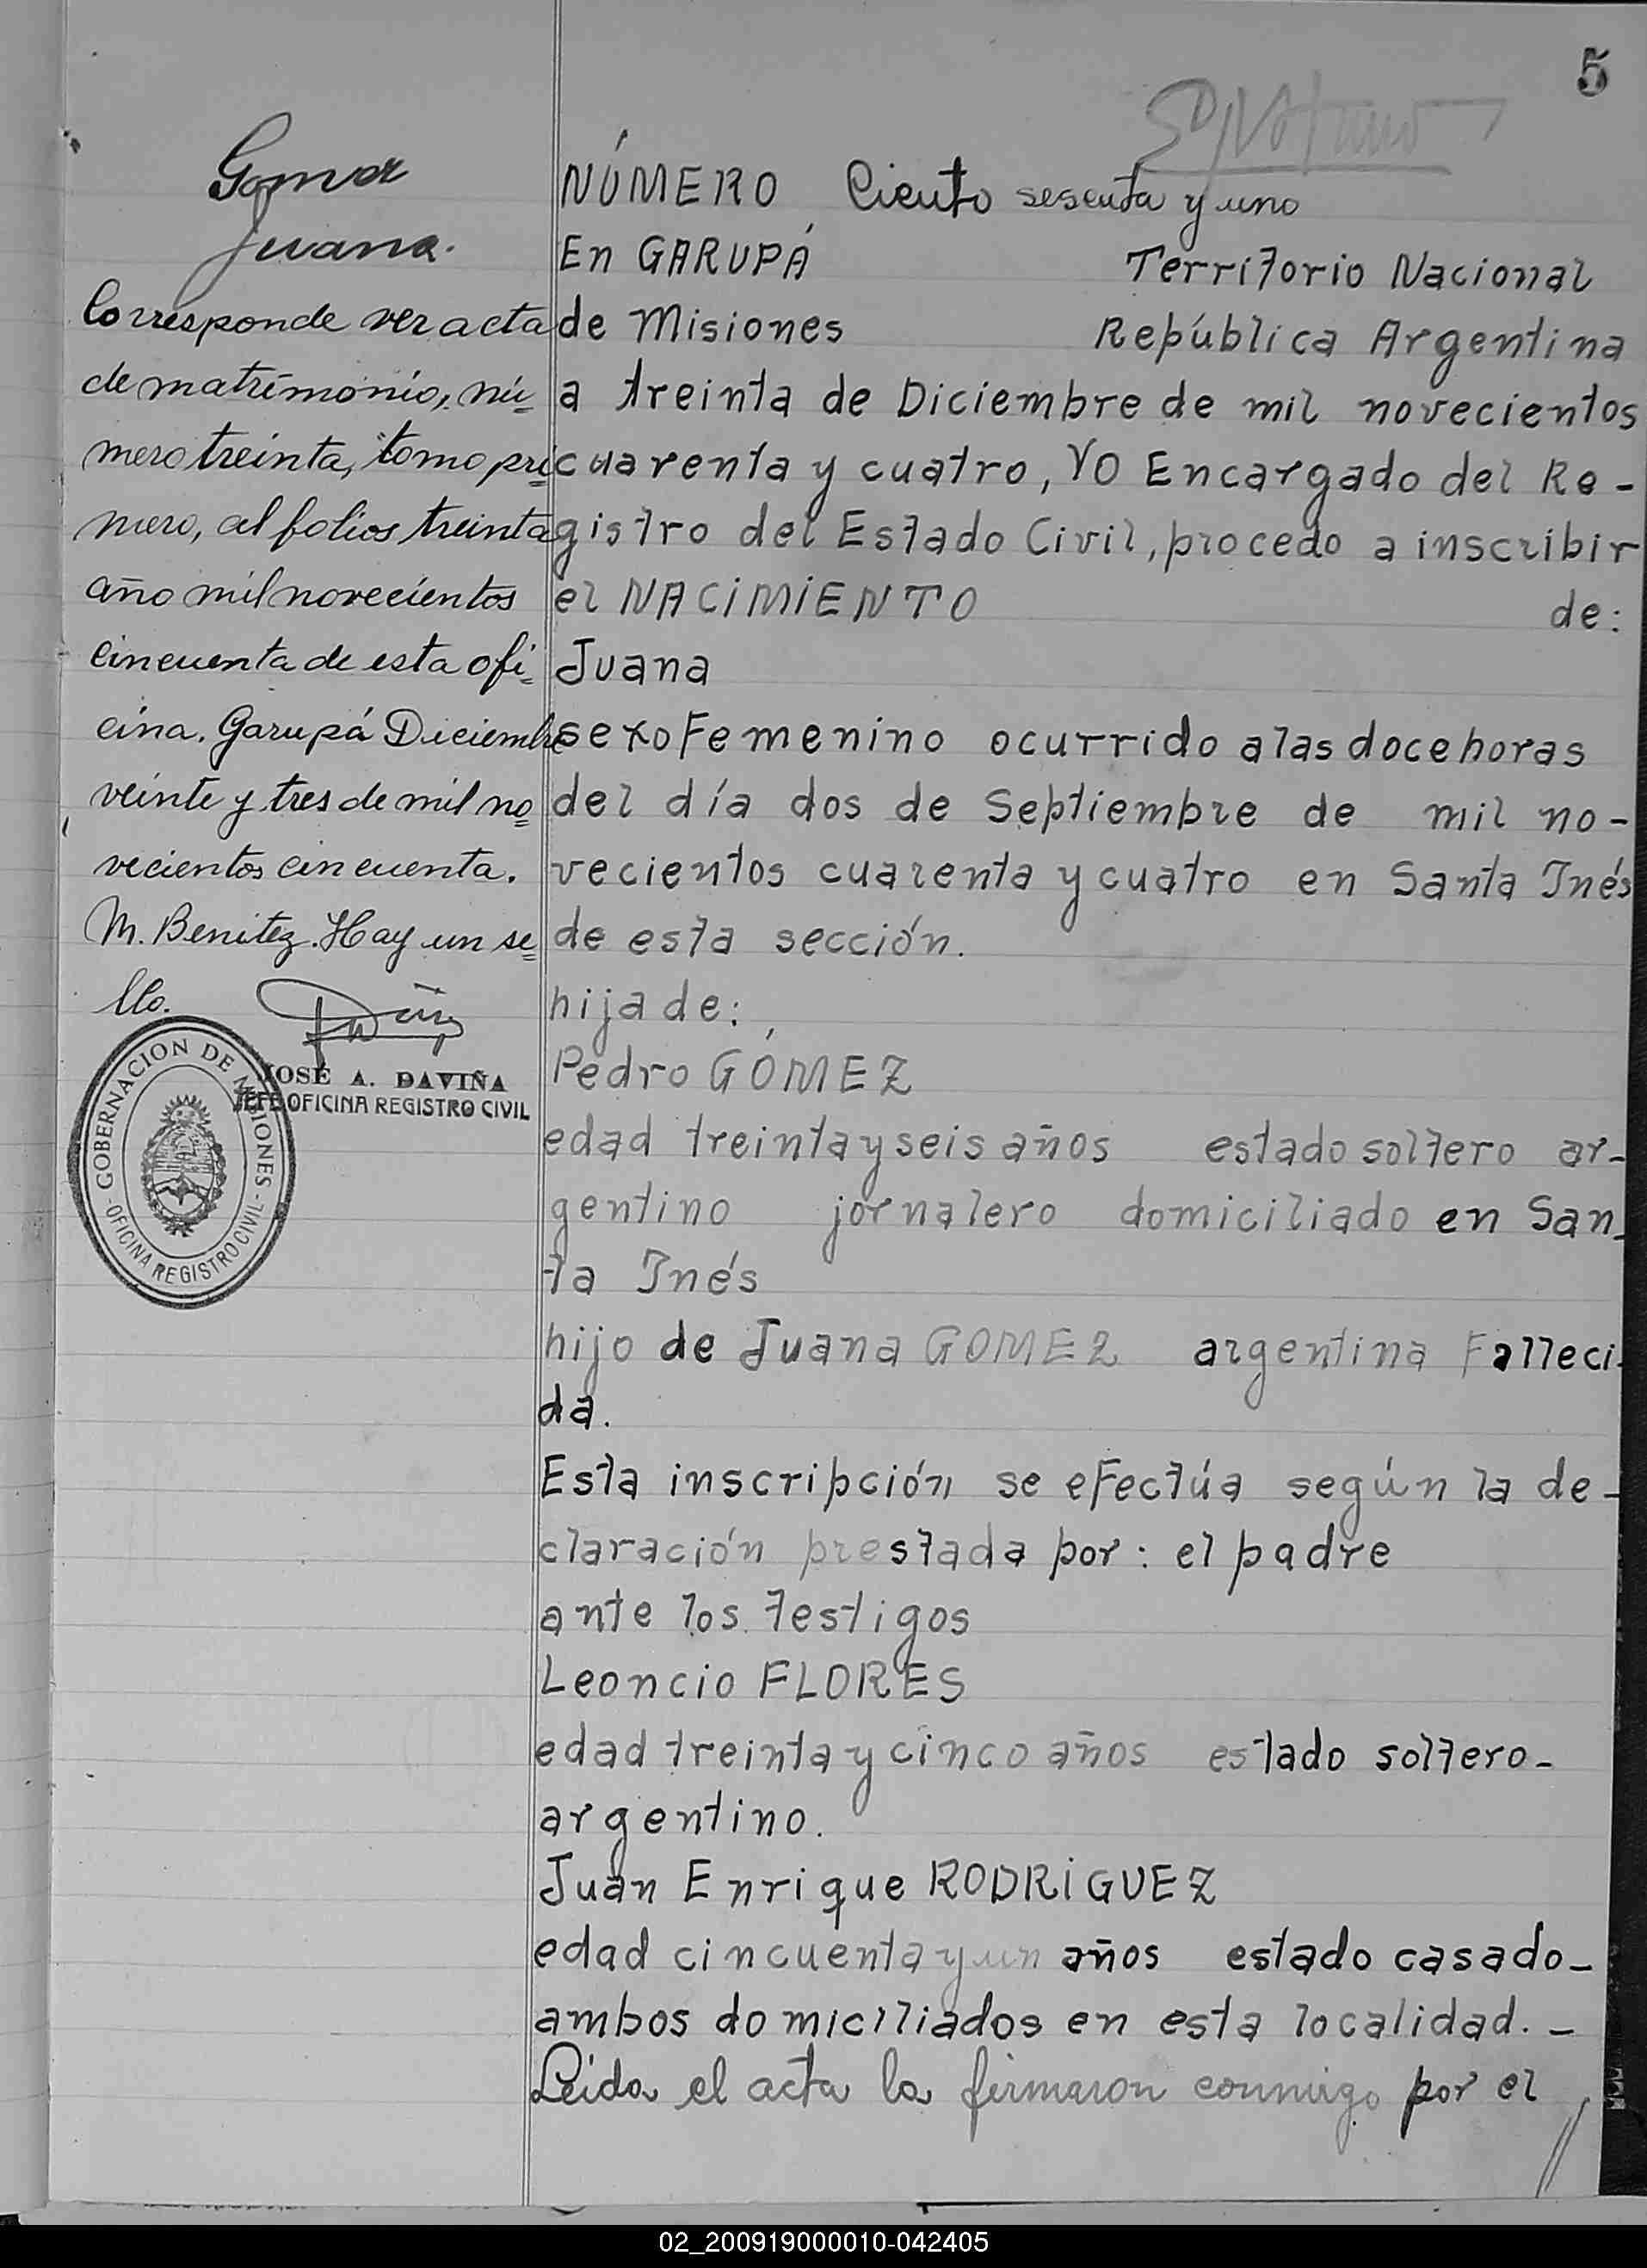 5
Gomez
Juana.
Corresponde ver acta
de matrimonio, nú=
mero treinta, tomo pri=
mero, al folios treinta
año mil novecientos
cincuenta de esta ofi=
cina. Garupá Diciembre
veinte y tres de mil no=
vecientos cincuenta.
M. Benitez. Hay un se=
llo.
JOSÉ A. DAVIÑA
JEFE OFICINA REGISTRO CIVIL
GOBERNACION DE MISIONES
- OFICINA REGISTRO CIVIL -
NÚMERO Ciento sesenta y uno
En GARUPÁ Territorio Nacional
de Misiones República Argentina
a treinta de Diciembre de mil novecientos
cuarenta y cuatro, YO Encargado del Re-
gistro del Estado Civil, procedo a inscribir
el NACIMIENTO de:
Juana
sexo Femenino ocurrido a las doce horas
del día dos de Septiembre de mil no-
vecientos cuarenta y cuatro en Santa Inés
de esta sección.
hija de:
Pedro GÓMEZ
edad treinta y seis años estado soltero ar-
gentino jornalero domiciliado en San-
ta Inés
hijo de Juana GOMEZ argentina Falleci-
da.
Esta inscripción se efectúa según la de-
claración prestada por: el padre
ante los testigos
Leoncio FLORES
edad treinta y cinco años estado soltero-
argentino.
Juan Enrique RODRIGUEZ
edad cincuenta y un años estado casado-
ambos domiciliados en esta localidad. -
Leida el acta la firmaron conmigo por el
//
02_200919000010-042405